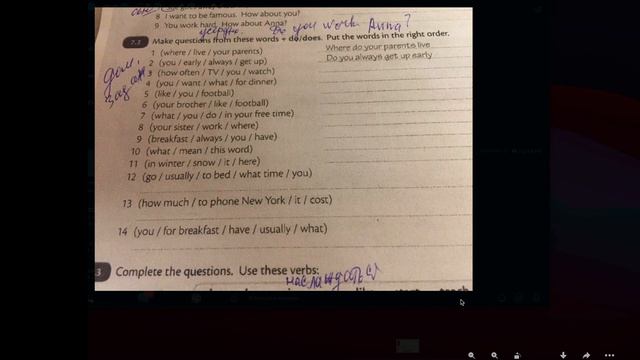 8 I want to be famous. How about you?
9 You work hard. How about Anna?
Do you work Anna?
7.2 Make questions from these words + do/does. Put the words in the right order.
1 (where / live / your parents) Where do your parents live
2 (you / early / always / get up) Do you always get up early
3 (how often / TV / you / watch)
4 (you / want / what / for dinner)
5 (like / you / football)
6 (your brother / like / football)
7 (what / you / do / in your free time)
8 (your sister / work / where)
9 (breakfast / always / you / have)
10 (what / mean / this word)
11 (in winter / snow / it / here)
12 (go / usually / to bed / what time / you)
13 (how much / to phone New York / it / cost)
14 (you / for breakfast / have / usually / what)
3 Complete the questions. Use these verbs:
наслаждаться